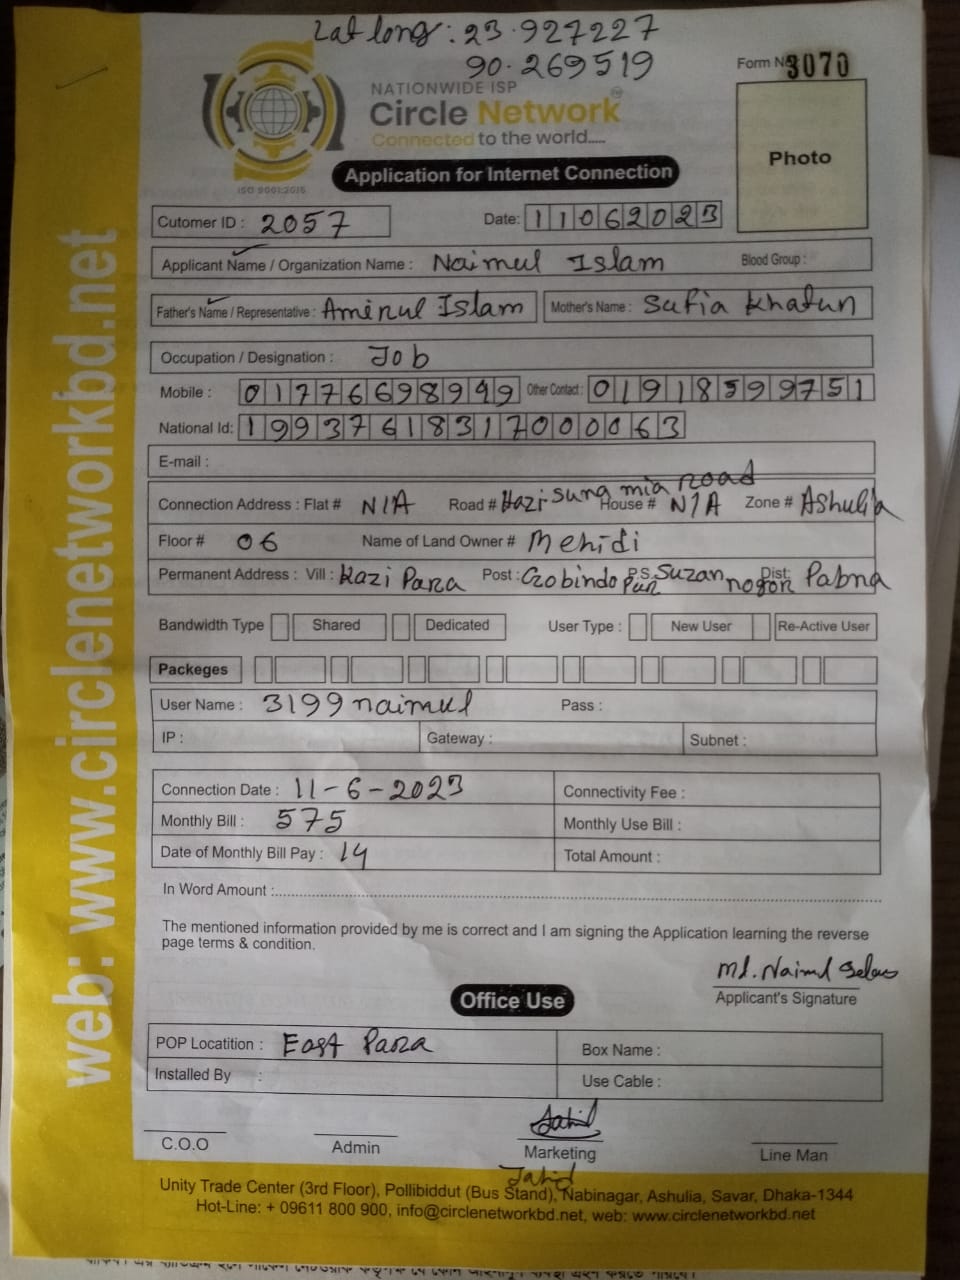 Lat long: 23.927227
90.269519
Form No 3070
NATIONWIDE ISP
Circle Network
Connected to the world.....
ISO 9001:2015
Application for Internet Connection
Photo
Cutomer ID : 2057 Date: 11062023
Applicant Name / Organization Name : Naimul Islam Blood Group :
Father's Name / Representative : Aminul Islam Mother's Name : Sufia Khatun
Occupation / Designation : Job
Mobile : 01776698949 Other Contact : 01918599751
National Id: 19937618317000063
E-mail :
Connection Address : Flat # N/A Road # Hazi sung mia road House # N/A Zone # Ashulia
Floor # 06 Name of Land Owner # Mehidi
Permanent Address : Vill : Kazi Para Post : Gobindo Pur P.S. Suzan nogor Dist: Pabna
Bandwidth Type Shared Dedicated User Type : New User Re-Active User
Packeges
User Name : 3199naimul Pass :
IP : Gateway : Subnet :
Connection Date : 11-6-2023 Connectivity Fee :
Monthly Bill : 575 Monthly Use Bill :
Date of Monthly Bill Pay : 14 Total Amount :
In Word Amount :
The mentioned information provided by me is correct and I am signing the Application learning the reverse
page terms & condition.
Md. Naimul Islam
Applicant's Signature
Office Use
POP Locatition : East Para Box Name :
Installed By : Use Cable :
Jahid
C.O.O Admin Marketing Line Man
Jahid
Unity Trade Center (3rd Floor), Pollibiddut (Bus Stand), Nabinagar, Ashulia, Savar, Dhaka-1344
Hot-Line: + 09611 800 900, info@circlenetworkbd.net, web: www.circlenetworkbd.net
web: www.circlenetworkbd.net